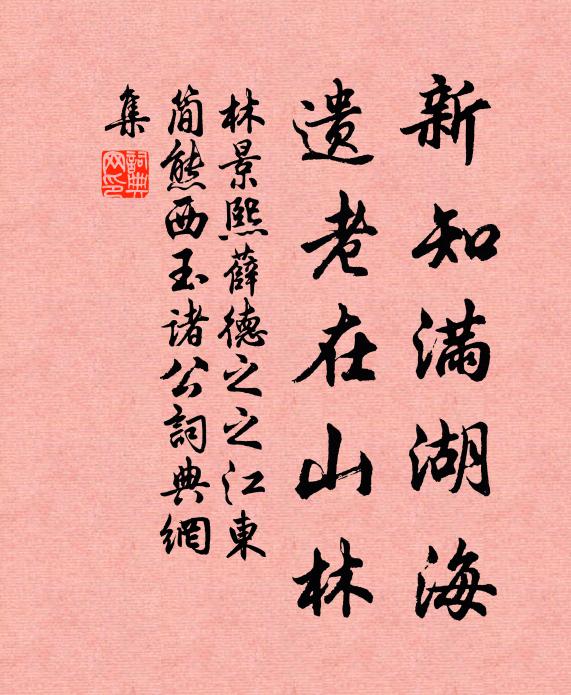 新知滿湖海
遺老在山林
林景熙薛德之之江東
簡熊西玉諸公詞典網
集
詞典網印